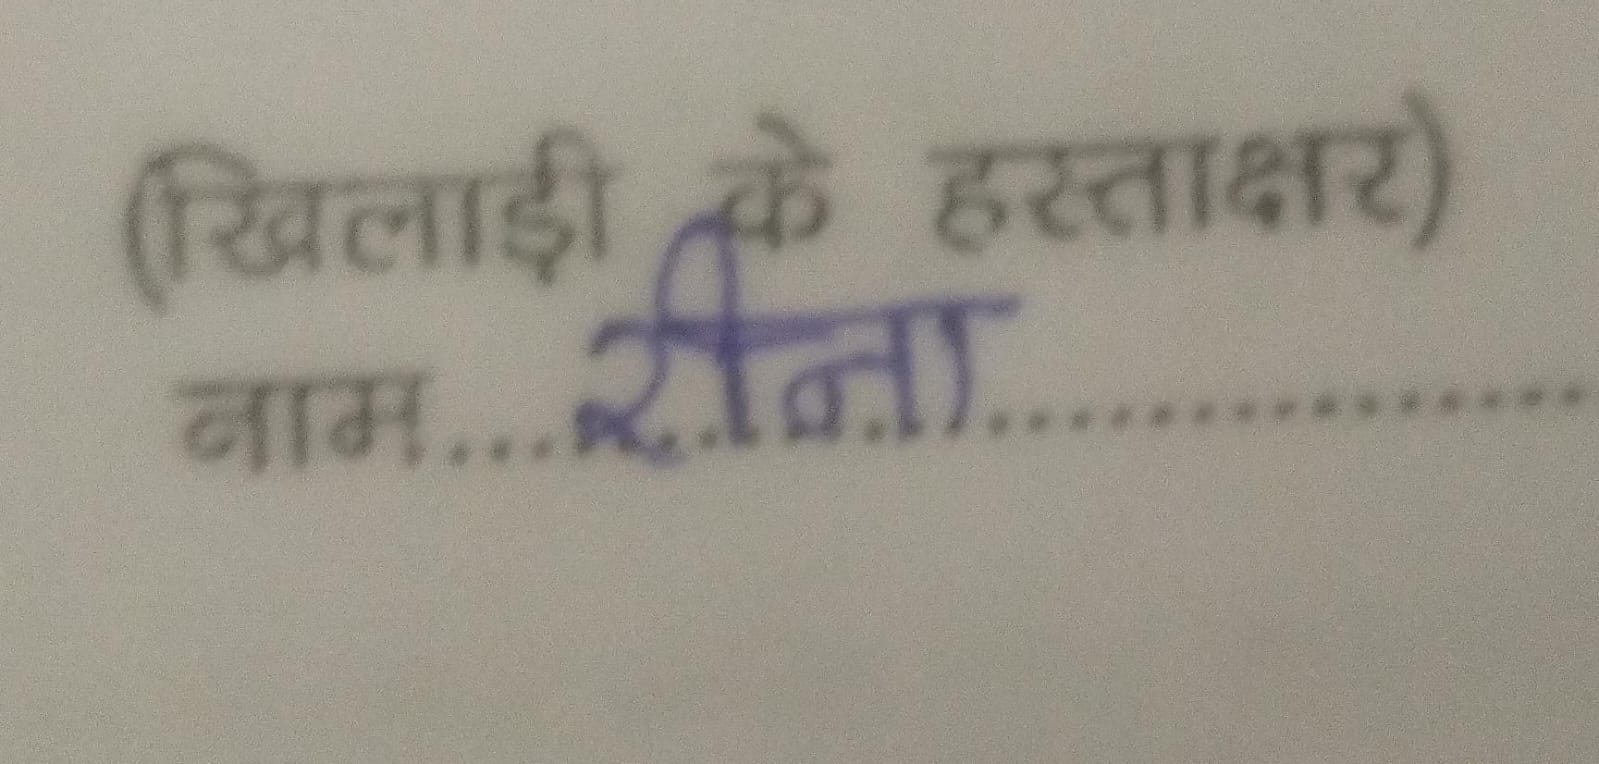 (खिलाड़ी के हस्ताक्षर)
नाम...रीना..................